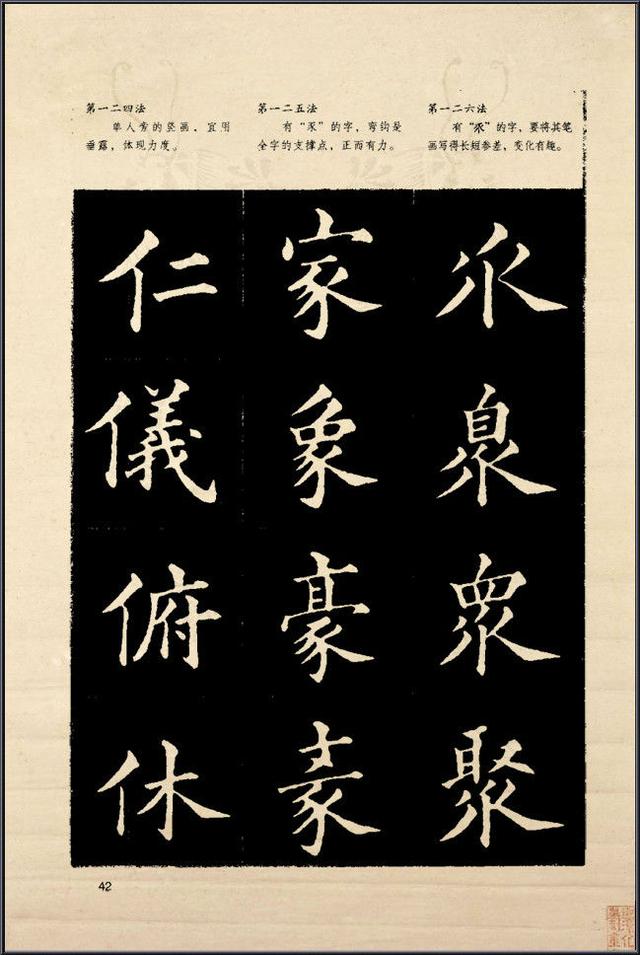 第一二四法
单人旁的竖画，宜用
垂露，体现力度。
第一二五法
有“豕”的字，弯钩是
全字的支撑点，正而有力。
第一二六法
有“乑”的字，要将其笔
画写得长短参差，变化有趣。
仁儀俯休
家象豪
乑臮眾聚
42